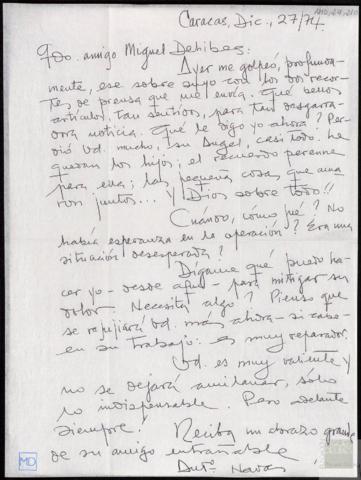 AMD,29,210
Caracas, Dic., 27/74
Qdo. amigo Miguel Delibes:
Ayer me golpeó, profunda-
mente, ese sobre suyo con los dos recor-
tes de prensa que me envía. Qué bellos
artículos, tan sentidos, para tan desgarra-
dora noticia. Qué le digo yo ahora? Per-
dió Ud. mucho, su Angel, casi todo. Le
quedan los hijos; el recuerdo perenne
para ella; las pequeñas cosas que ama-
ron juntos... Y Dios sobre todo!!
Cuándo, cómo fué? No
había esperanza en la operación? Era una
situación desesperada?
Dígame qué puedo ha-
cer yo - desde aquí - para mitigar su
dolor. Necesita algo? Pienso que
se refugiará Ud. más ahora - si cabe -
en su trabajo: es muy reparador.
Ud. es muy valiente y
no se dejará aniquilar, sólo
lo indispensable. Pero adelante
siempre! Reciba un abrazo grande
de su amigo entrañable
Antº Navas
MD